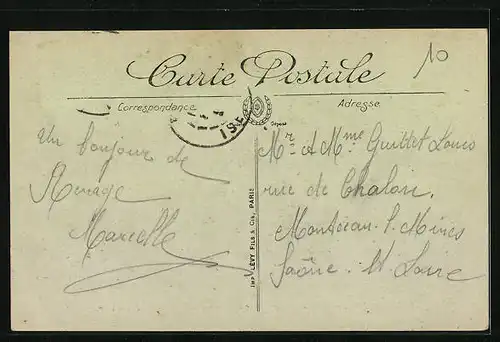 10
Carte Postale
Correspondance
Adresse
Déposé
ISE
Un bonjour de
Renage
Marcelle
Mr & Mme Guillet Louis
rue de Chalon
Montceau-l-Mines
Saône-et-Loire
IMP. LÉVY FILS & CIE, PARIS